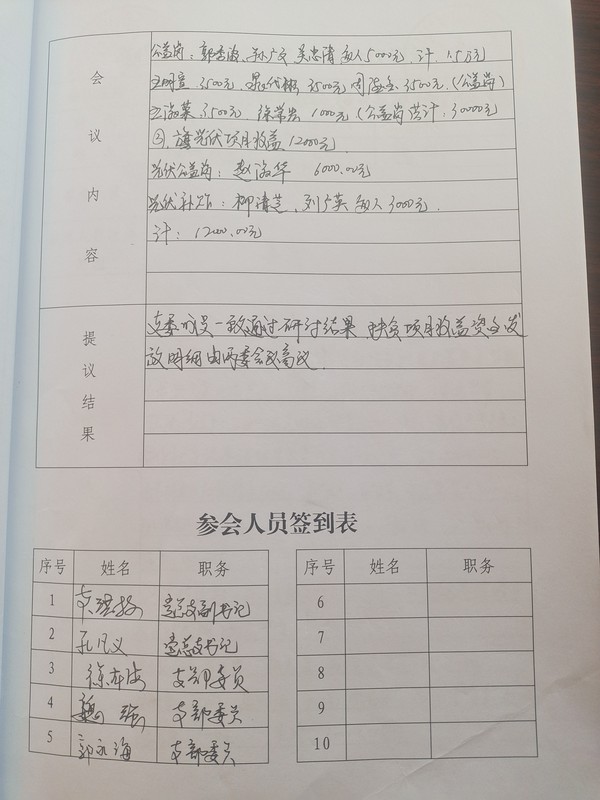 会议内容
公益岗：郭秀海、孙广文 吴忠清 每人5000元，计：1.5万元
3500元、3500元 周海全、3500元、(公益岗)
王淑慕 3500元、徐荣 1000元 (公益岗共计：30000元
②、旗光伏项目收益12000元
光伏公益岗：赵淑华 6000.00元
光伏补贴：柳清芝、刘广英 每人3000元.
计：12000.00元
提议结果
支委成员一致通过研讨结果、扶贫项目收益资金发
放明细由两委会商议
参会人员签到表
序号 姓名 职务
1 党总支副书记
2 孔凡义 党总支书记
3 徐 海 支部委员
4 魏 支部委员
5 郭永海 支部委员
序号 姓名 职务
6
7
8
9
10